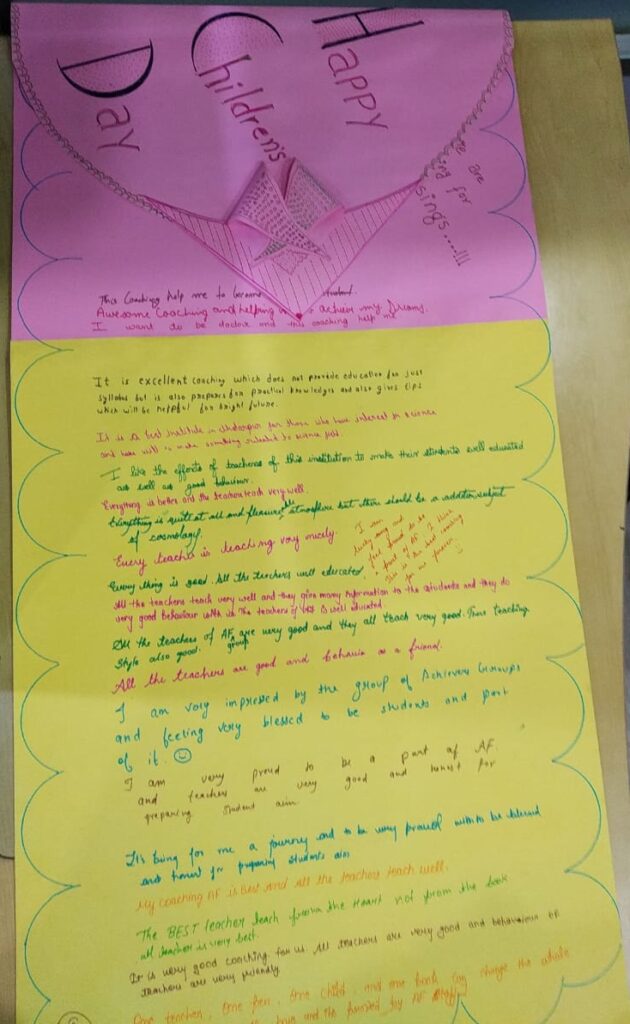 Happy
Children's
Day
This Coaching help me to become student.
Awesome Coaching and helping achive my Dreams.
I want to be doctor and this coaching help me
It is excellent coaching which does not provide education for just
syllabus but is also prepares for practical knowledges and also gives tips
which will be helpful for bright future.
It is a best institute in for those who have interest in science
and have will to make something related to science field.
I like the efforts of teachers of this institution to make their students well educated
as well as good behaviour.
Everything is better and the teachers teach very well.
Everything is quite at all and pleasure atmosphere but there should be a addition subject
of cosmology.
Every teacher is teaching very nicely.
I am
lucky and
proud to be
a part of AF I think
this is the best coaching
for me
Every thing is good. All the teachers well educated.
All the teachers teach very well and they give many information to the students and they do
very good behaviour with us The teachers of is well educated.
All the teachers of AF group are very good and they all teach very good. Their teaching
style also good.
All the teachers are good and behavior as a friend.
I am very impressed by the group of Achievers Groups
and feeling very blessed to be students and part
of it.
I am very proud to be a part of AF.
and teachers are very good and honest for
preparing student aim
It's being for me a journey and to be very proud to be
and honest for preparing students aim
My coaching AF is Best And All the teachers teach well.
The BEST teacher teach from the Heart not from the book
all teacher is very best.
It is very good coaching for us. All teachers are very good and behaviour of
teachers are very friendly.
One teacher, One pen, One child, and one book can change the whole